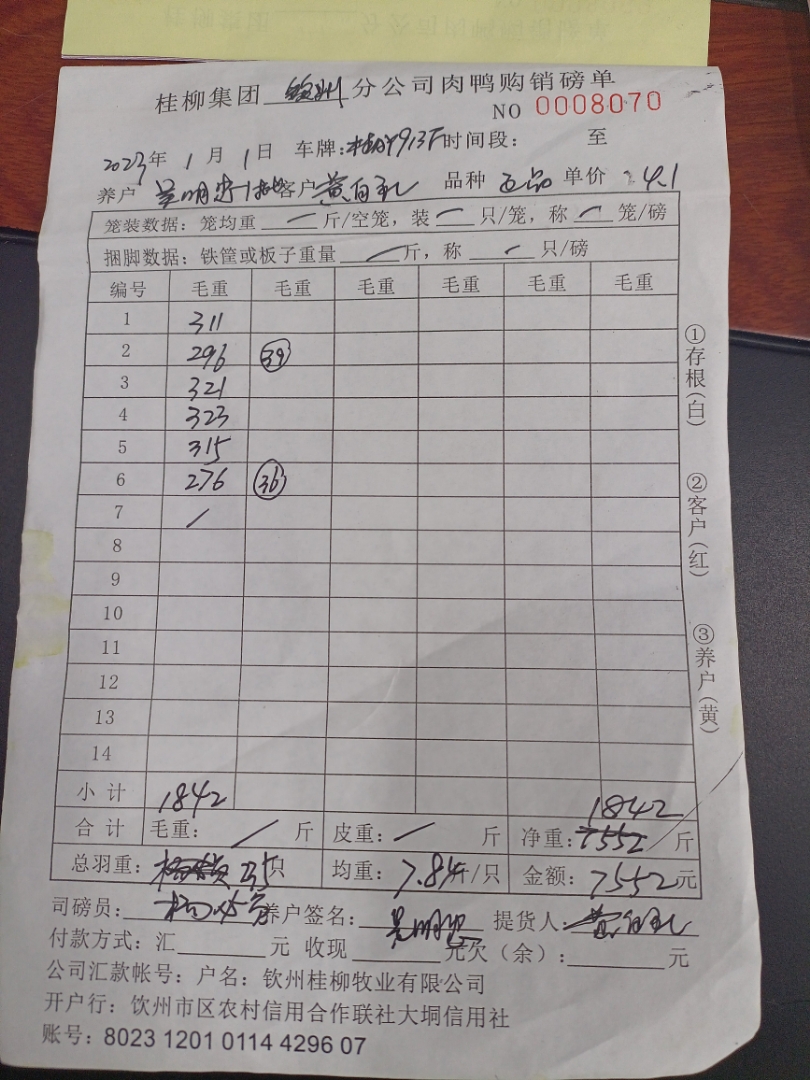 桂柳集团 钦州 分公司肉鸭购销磅单
NO 0008070
2023年 1月 1日 车牌: 913F 时间段: 至
养户 吴明忠 客户 黄自礼 品种 单价 4.1
笼装数据: 笼均重 一 斤/空笼, 装 一 只/笼, 称 一 笼/磅
捆脚数据: 铁筐或板子重量 一 斤, 称 一 只/磅
编号 毛重 毛重 毛重 毛重 毛重 毛重
1 311
2 296 39
3 321
4 323
5 315
6 276 36
7 /
8
9
10
11
12
13
14
小计 1842 1842
合计 毛重: / 斤 皮重: / 斤 净重: 7552 斤
总羽重: 235只 均重: 7.84斤/只 金额: 7552元
司磅员: 养户签名: 吴明忠 提货人: 黄自礼
付款方式: 汇 元 收现 元欠(余): 元
公司汇款帐号: 户名: 钦州桂柳牧业有限公司
开户行: 饮州市区农村信用合作联社大垌信用社
账号: 8023 1201 0114 4296 07
①存根(白) ②客户(红) ③养户(黄)